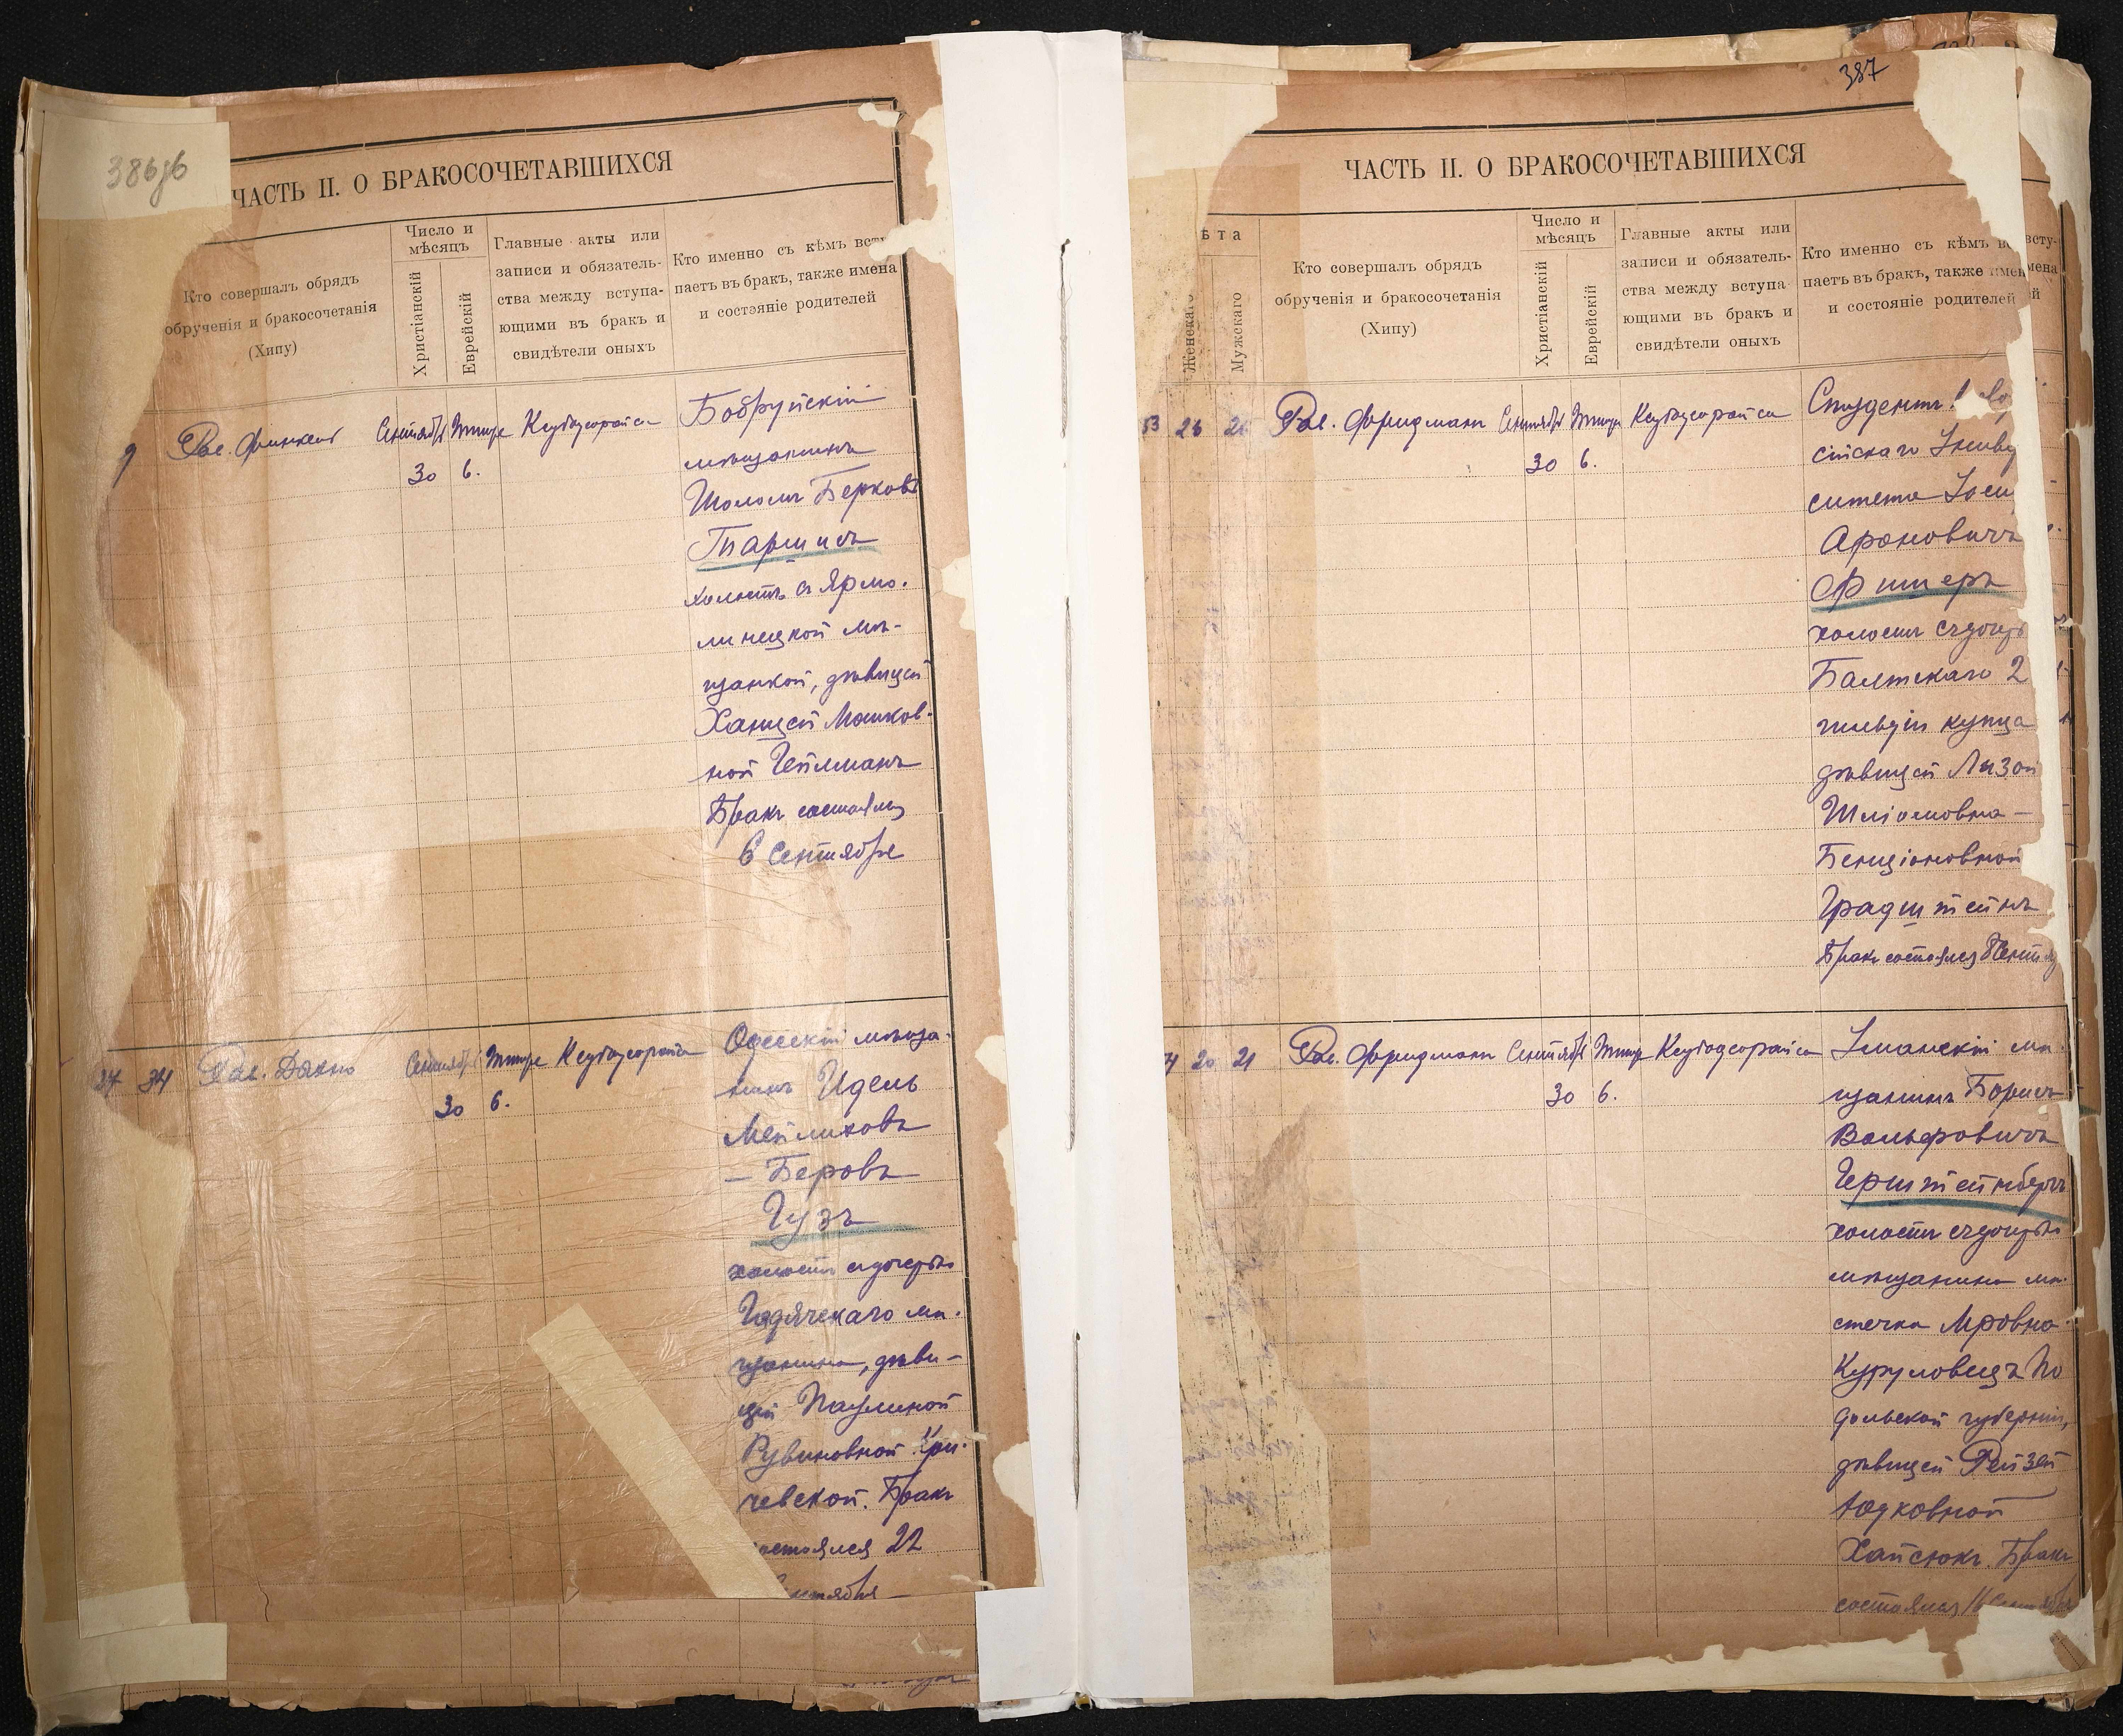 386зб
ЧАСТЬ II. О БРАКОСОЧЕТАВШИХСЯ
Кто совершалъ обрядъ
обрученія и бракосочетанія
(Хипу)
Число и
мѣсяцъ
Христіанскій
Еврейскій
Главные акты или
записи и обязатель-
ства между вступа-
ющими въ бракъ и
свидѣтели оныхъ
Кто именно съ кѣмъ всту
паетъ въ бракъ, также имена
и состояніе родителей
9
Рав. Финкель
Сентября
30
Тишре
6.
Кедушорайса
Бобруйскій
мѣщанинъ
Шоломъ Берковъ
Таршисъ
холостъ съ Ярмо-
линецкой мѣ-
щанкой, дѣвицей
Ханцей Мошков-
ной Гейлманъ
Бракъ состоялся
6 Сентября
24 34
Рав. Дяхно
Сентября
30
Тишре
6.
Кедушорайса
Одесскій мѣща-
нинъ Идель
Мейлиховъ
— Беровъ
Гузъ
холостъ съ дочерью
Гадячскаго мѣ-
щанина, дѣви-
цей Паулиной
Рувиновной
чевской. Бракъ
состоялся 22
387
ЧАСТЬ II. О БРАКОСОЧЕТАВШИХСЯ
ѣта
Женскаго
Мужскаго
Кто совершалъ обрядъ
обрученія и бракосочетанія
(Хипу)
Число и
мѣсяцъ
Христіанскій
Еврейскій
Главные акты или
записи и обязатель-
ства между вступа
ющими въ бракъ и
свидѣтели оныхъ
Кто именно съ кѣмъ в
паетъ въ бракъ, также имен
и состояніе родителей
53 26 26
Рав. Фридманъ
Сентября
30
Тишре
6.
Кедушорайса
Студентъ
сійскаго Универ
ситета Іоси
Ароновичъ
Фишеръ
холостъ съ дочерью
Балтскаго 2
гильдіи купца
дѣвицей Лизой
Шліомовна —
Бенціоновной
Градштейнъ
Бракъ состоялся
20 21
Рав. Фридманъ
Сентября
30
Тишре
6.
Кедушорайса
Уманскій мѣ-
щанинъ Борисъ
Вольфовичъ
Герштейнбергъ
холостъ съ дочерью
мѣщанина мѣ-
стечка Мровно-
Куруловецъ По
дольской губерніи,
дѣвицей Рейзей
Юдковной
Хайсюкъ. Бракъ
состоялся 16 Сентября